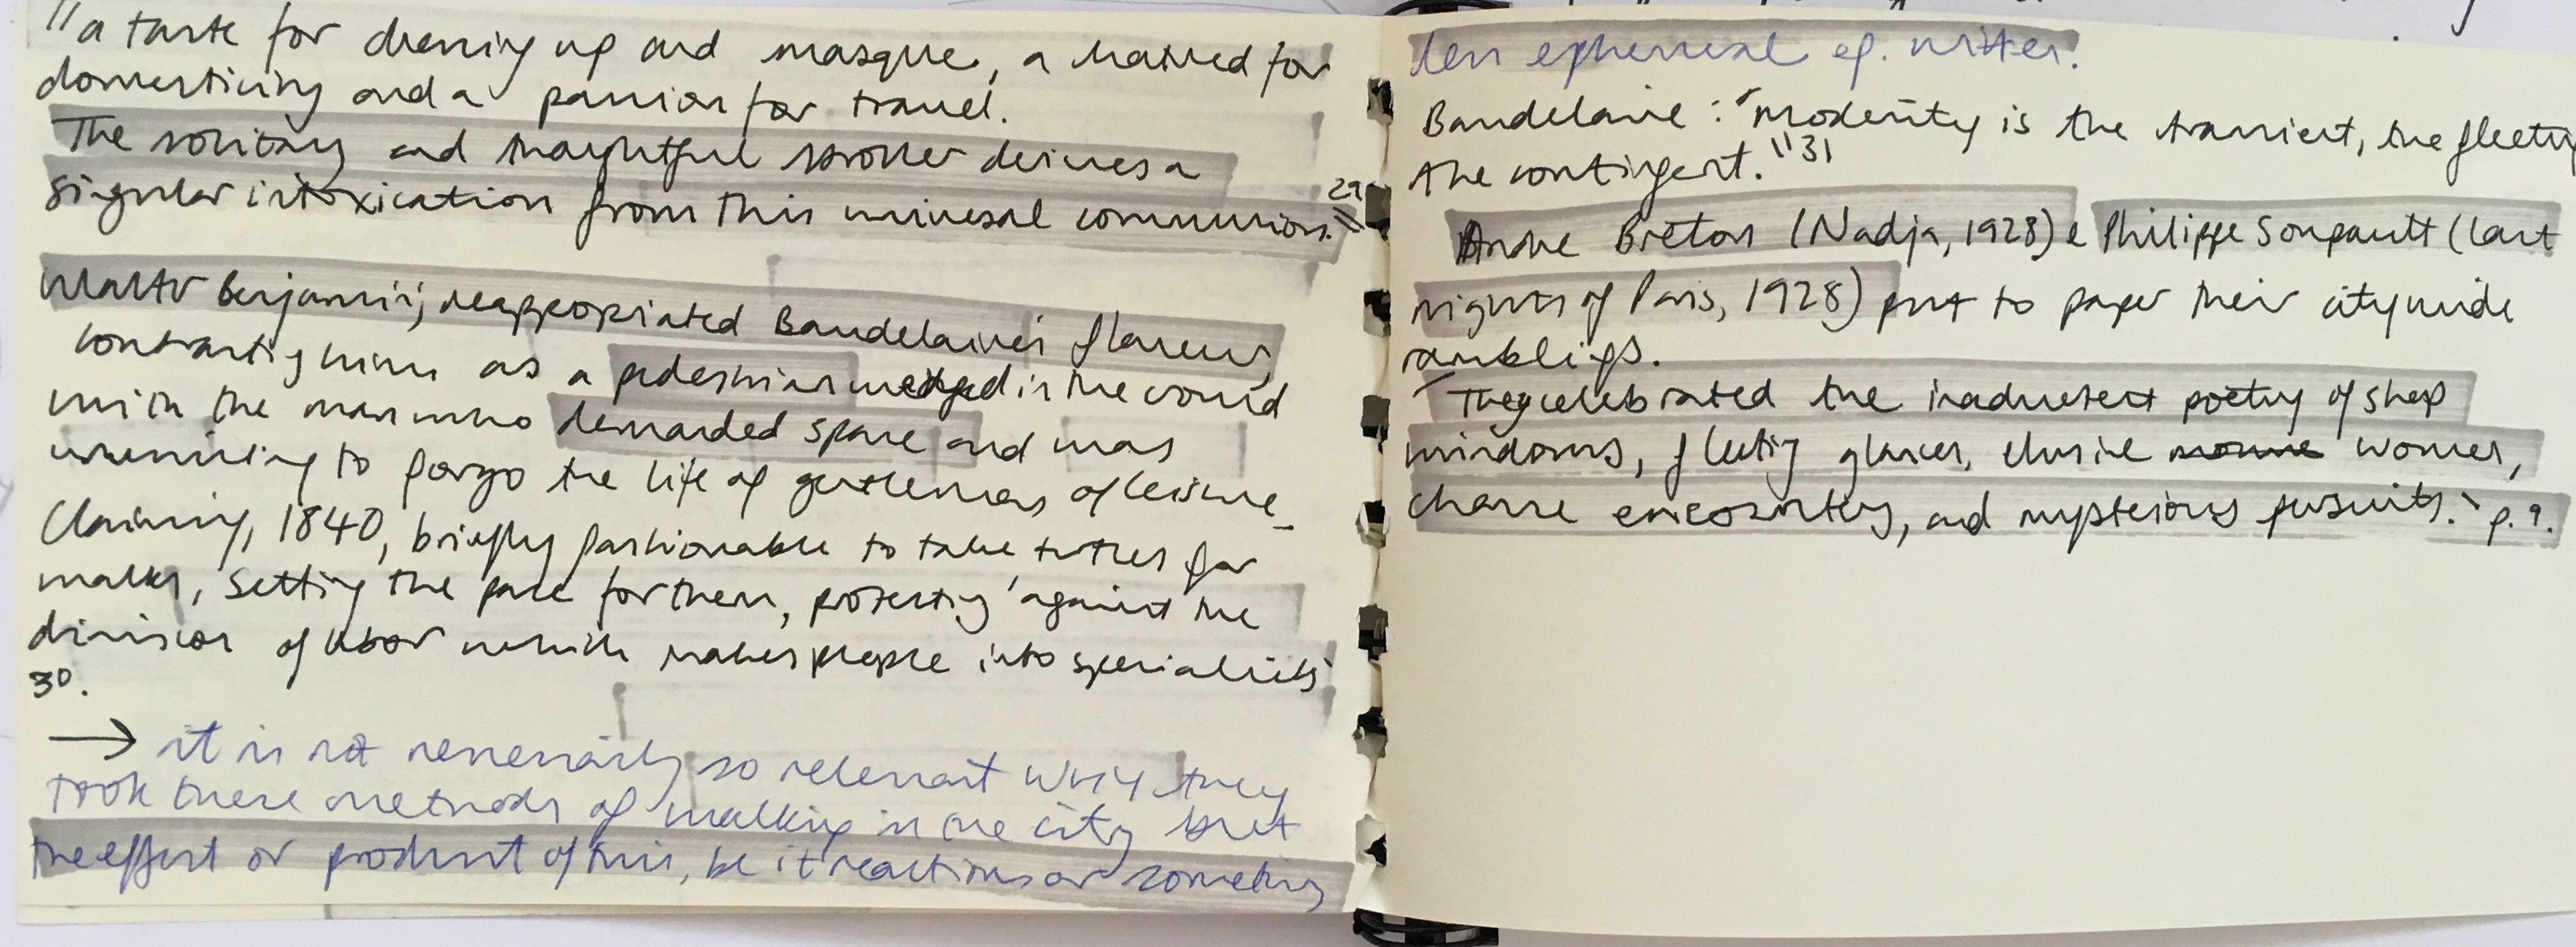 "a taste for dressing up and masque, a hatred for
domesticity and a passion for travel.
The solitary and thoughtful stroller derives a
singular intoxication from this universal communion." 29
Walter Benjamin; reappropriated Baudelaire's flaneur,
contrasting him as a pedestrian wedged in the crowd
with the man who demanded space and was
unwilling to forgo the life of gentleman of leisure
Claiming, 1840, briefly fashionable to take turtles for
walks, setting the pace for them, protesting 'against the
division of labor which makes people into specialists'
30.
→ it is not necessarily so relevant WHY they
took these methods of walking in the city but
the effect or product of this, be it reactions or something
less ephemeral ef. writer.
Baudelaire: "modernity is the transient, the fleeting
the contingent."31
Andre Breton (Nadja, 1928) e Philippe Soupault (last
nights of Paris, 1928) put to paper their citywide
ramblings.
They celebrated the inadvertent poetry of shop
windows, fleeting glances, elusive women,
chance encounters, and mysterious pursuits." p.9.